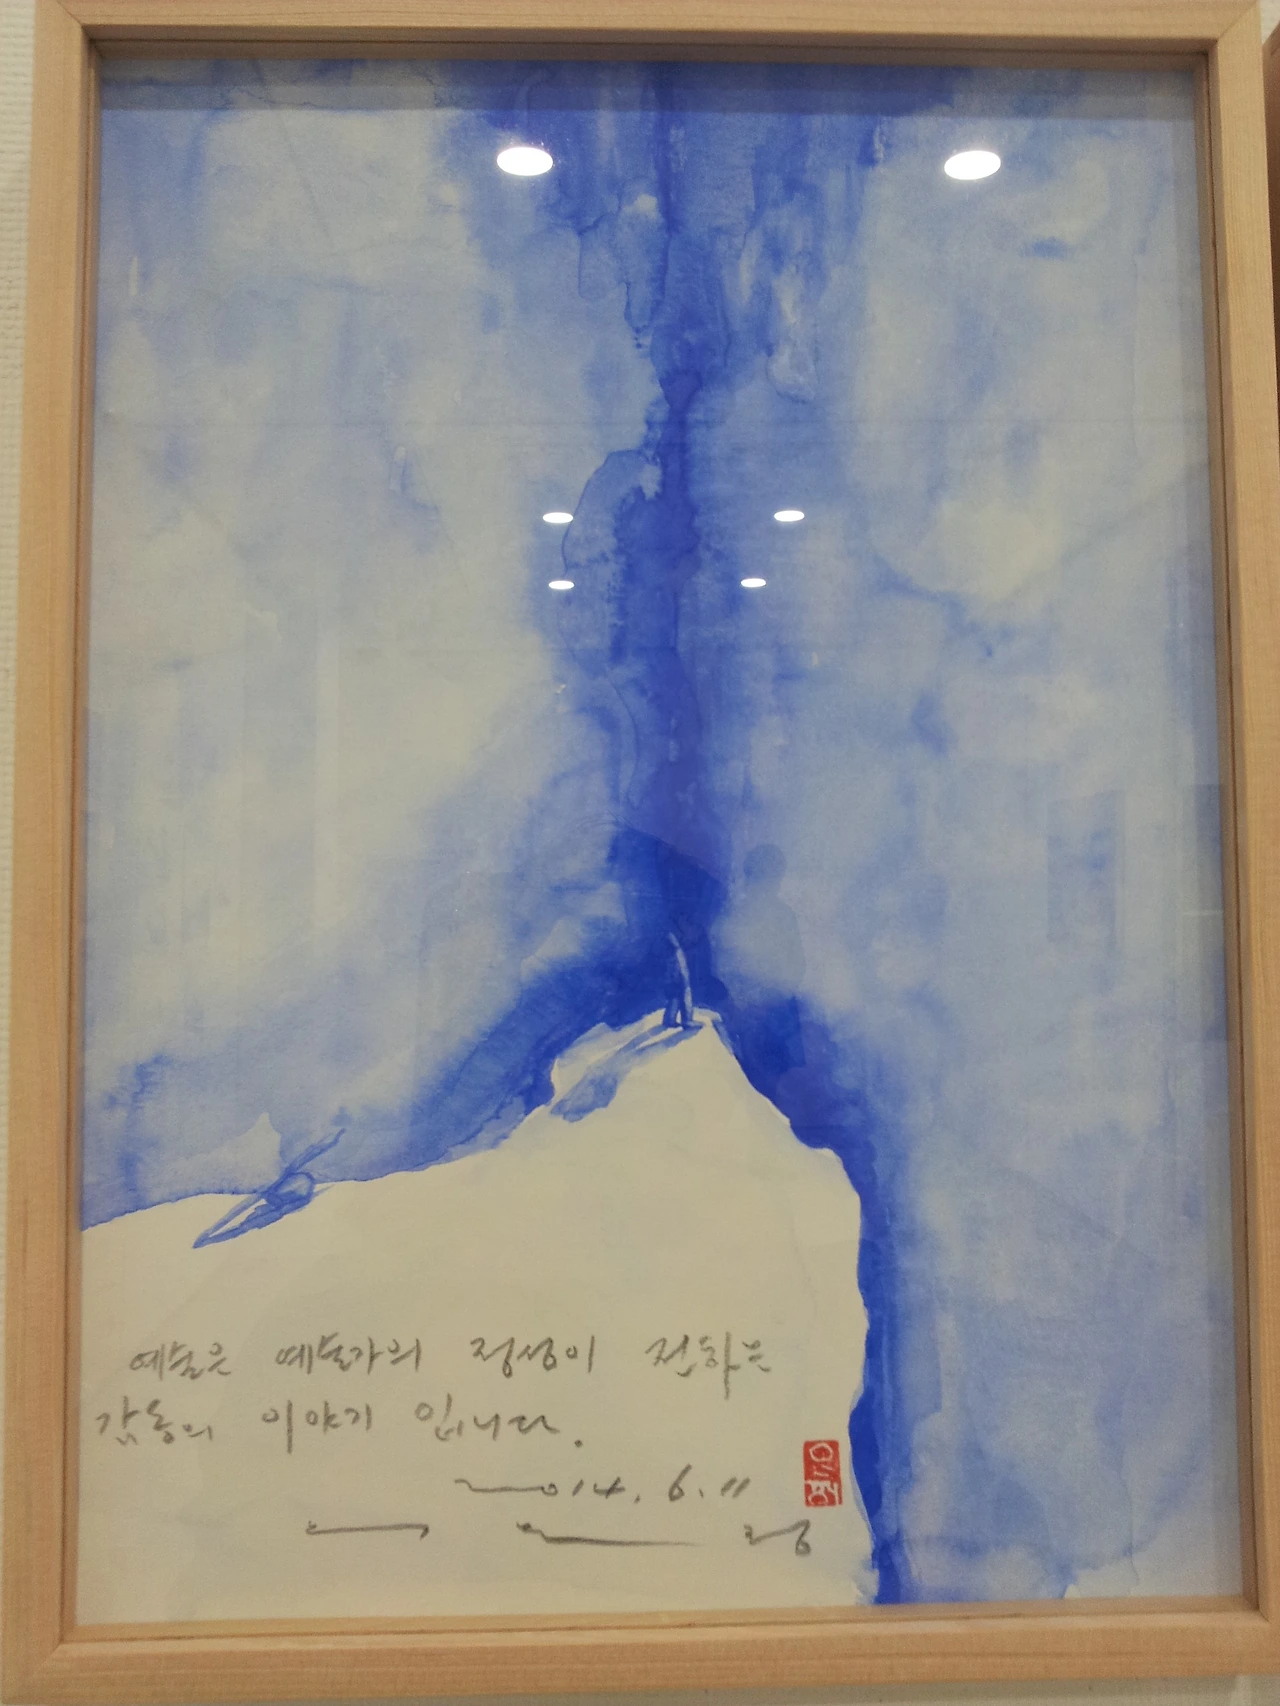 예술은 예술가의 정성이 전하는
감동의 이야기 입니다.
2014. 6. 11